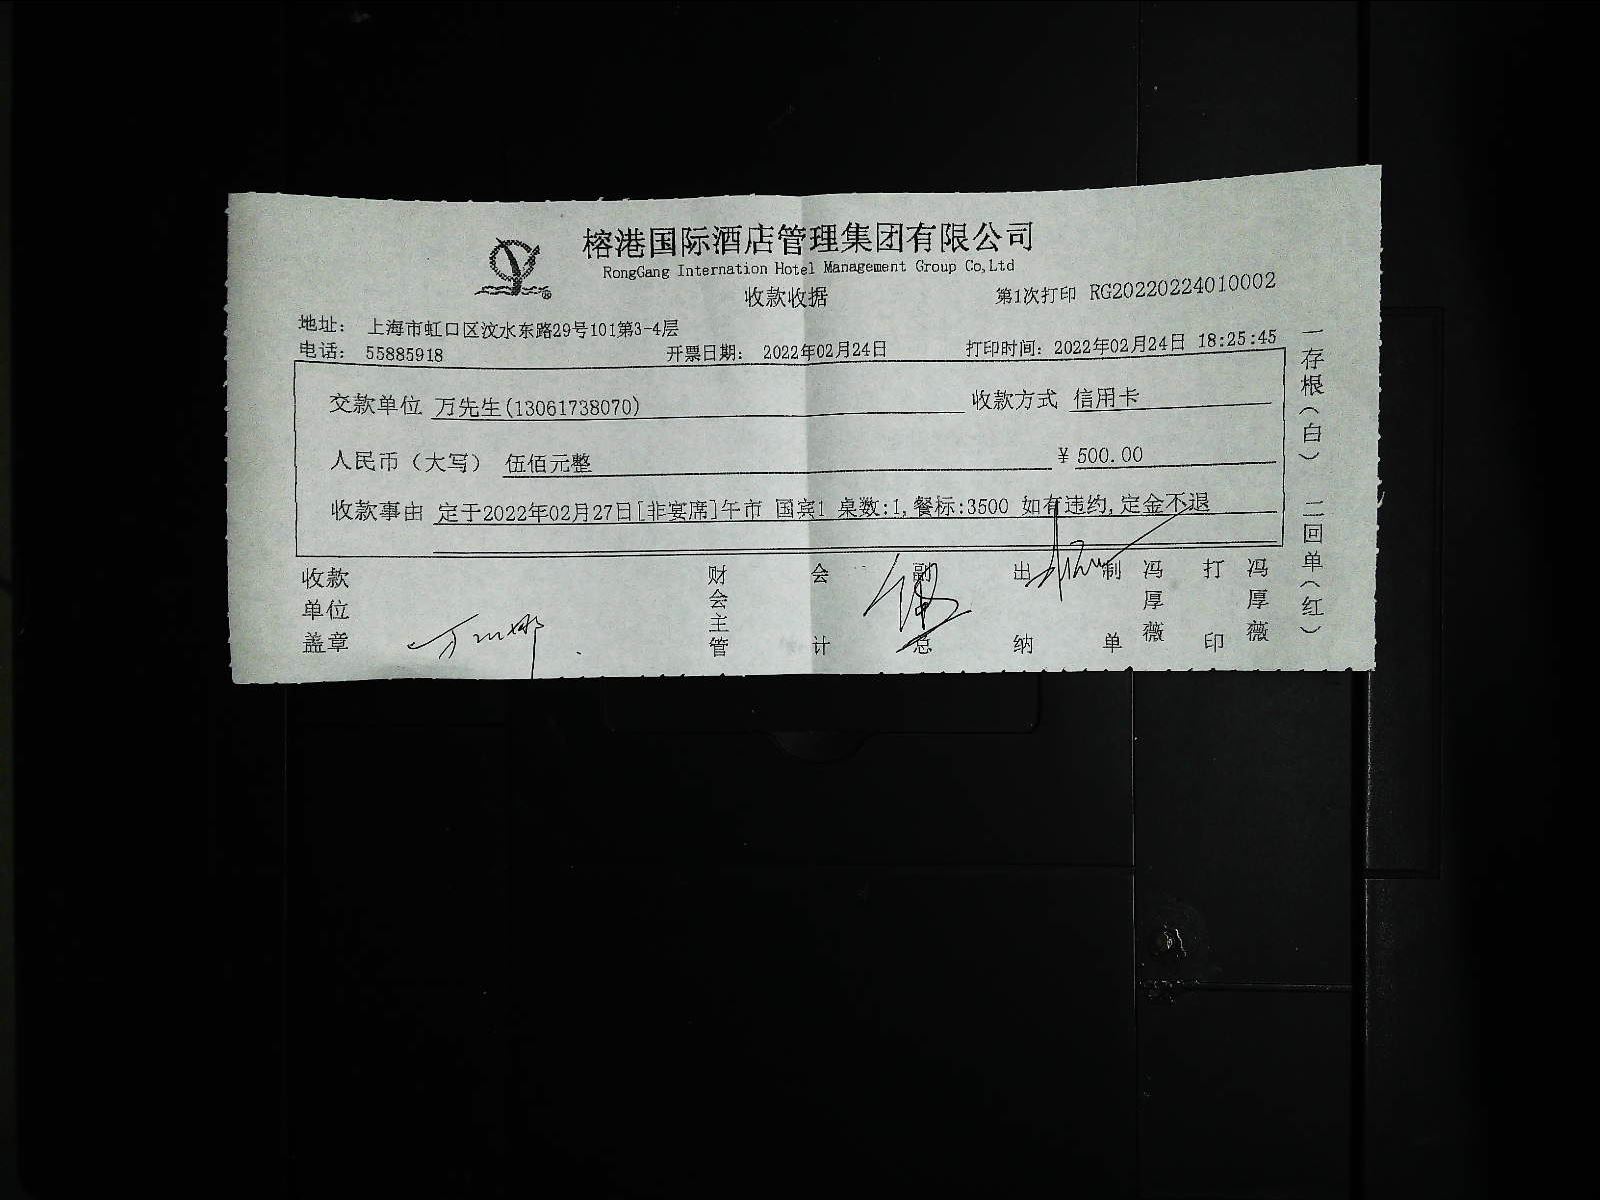 榕港国际酒店管理集团有限公司
RongGang Internation Hotel Management Group Co,Ltd
收款收据
第1次打印 RG20220224010002
地址： 上海市虹口区汶水东路29号101第3-4层
电话： 55885918 开票日期： 2022年02月24日 打印时间：2022年02月24日 18:25:45
交款单位 万先生(13061738070) 收款方式 信用卡
人民币（大写） 伍佰元整 ￥500.00
收款事由 定于2022年02月27日[非宴席]午市 国宾1 桌数:1,餐标:3500 如有违约,定金不退
收款单位盖章
财会主管
会计
副总
出纳
制单
冯厚薇
打印
冯厚薇
一存根（白） 二回单（红）